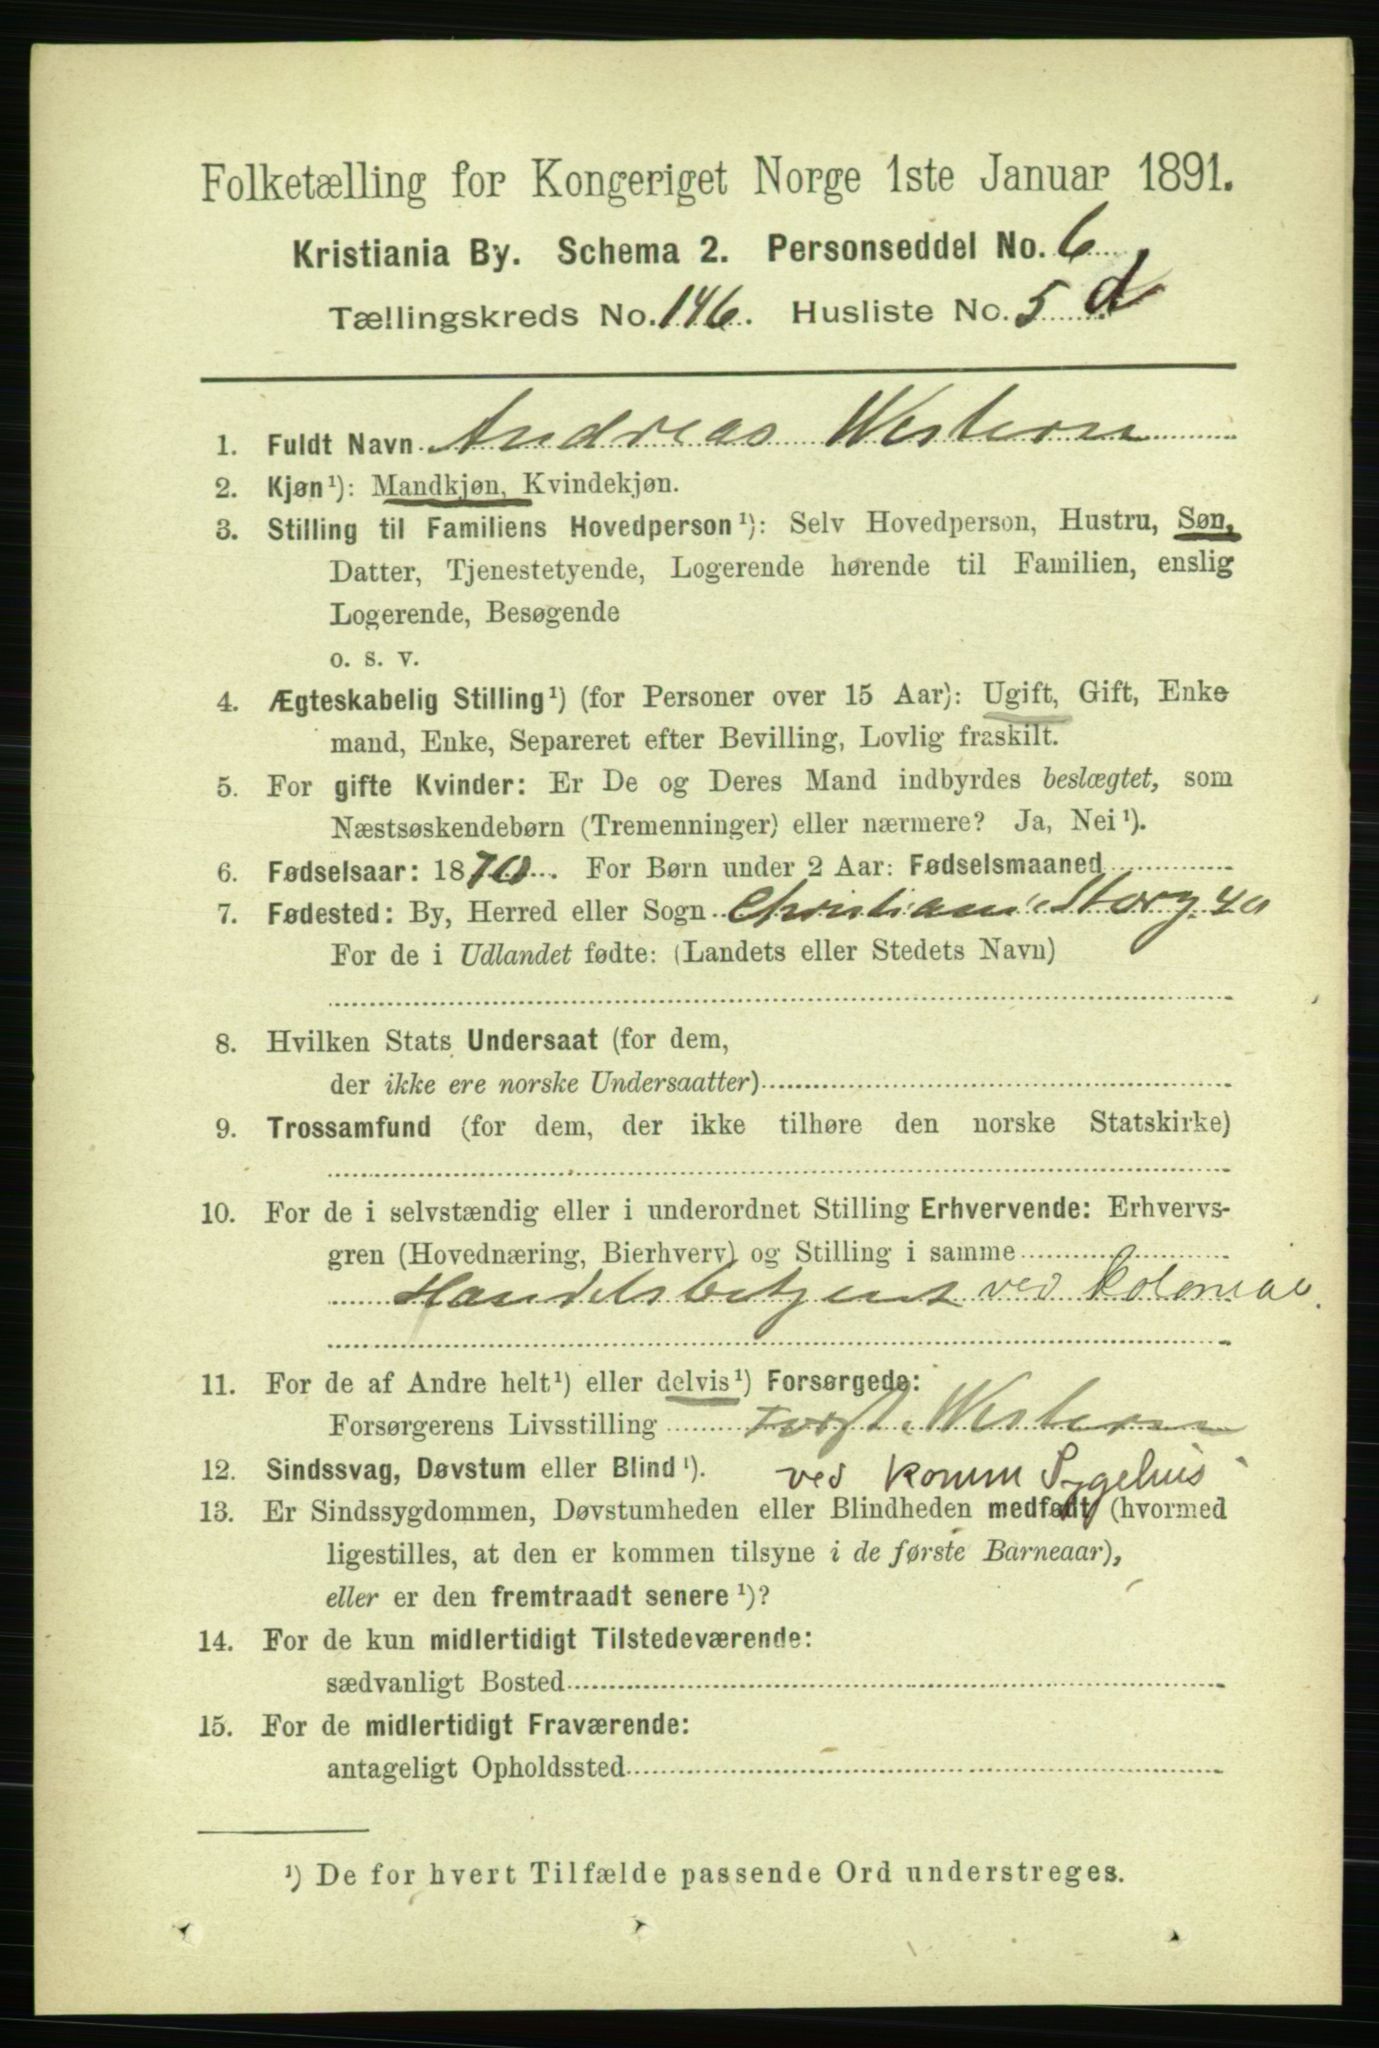 Folketælling for Kongeriget Norge 1ste Januar 1891.
Kristiania By. Schema 2. Personseddel No. 6
Tællingskreds No. 146. Husliste No. 5 d
1. Fuldt Navn Andreas Western
2. Kjøn¹): Mandkjøn, Kvindekjøn.
3. Stilling til Familiens Hovedperson¹): Selv Hovedperson, Hustru, Søn,
Datter, Tjenestetyende, Logerende hørende til Familien, enslig
Logerende, Besøgende
o. s. v.
4. Ægteskabelig Stilling¹) (for Personer over 15 Aar): Ugift, Gift, Enke
mand, Enke, Separeret efter Bevilling, Lovlig fraskilt.
5. For gifte Kvinder: Er De og Deres Mand indbyrdes beslægtet, som
Næstsøskendebørn (Tremenninger) eller nærmere? Ja, Nei¹).
6. Fødselsaar: 1870. For Børn under 2 Aar: Fødselsmaaned
7. Fødested: By, Herred eller Sogn Storg. 40
For de i Udlandet fødte: (Landets eller Stedets Navn)
8. Hvilken Stats Undersaat (for dem,
der ikke ere norske Undersaatter)
9. Trossamfund (for dem, der ikke tilhøre den norske Statskirke)
10. For de i selvstændig eller i underordnet Stilling Erhvervende: Erhvervs-
gren (Hovednæring, Bierhverv) og Stilling i samme
Handelsbetjent ved kolonial.
11. For de af Andre helt¹) eller delvis¹) Forsørgede:
Forsørgerens Livsstilling Western
12. Sindssvag, Døvstum eller Blind¹). ved komm Sygehus
13. Er Sindssygdommen, Døvstumheden eller Blindheden medfødt (hvormed
ligestilles, at den er kommen tilsyne i de første Barneaar),
eller er den fremtraadt senere¹)?
14. For de kun midlertidigt Tilstedeværende:
sædvanligt Bosted
15. For de midlertidigt Fraværende:
antageligt Opholdssted
¹) De for hvert Tilfælde passende Ord understreges.